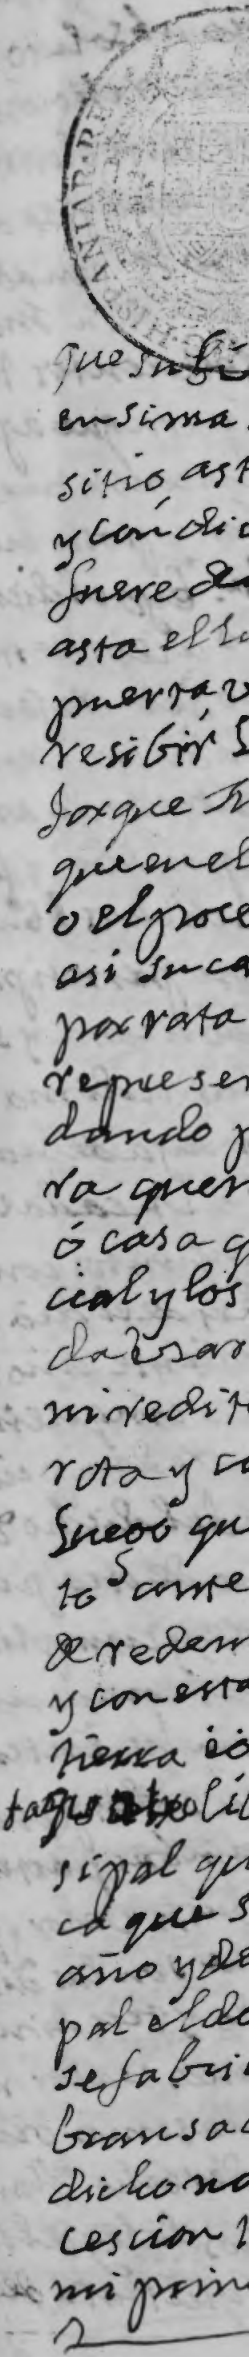 HISPANIAR·RE
que subi
ensima
sitio, ast
y con dic
fuere de
asta el
puerta v
resibir S
Jorque
que en el
o el proce
asi su ca
por rata
represen
dando p
ra quer
ó casa q
cial y los
da
ni redit
rota y ca
fuego qu
to ante
de reden
y con esta
tierra
lib
sipal qu
ca que s
año y de
pal el do
se fabric
bransa
dicho no
cescion
mi prin